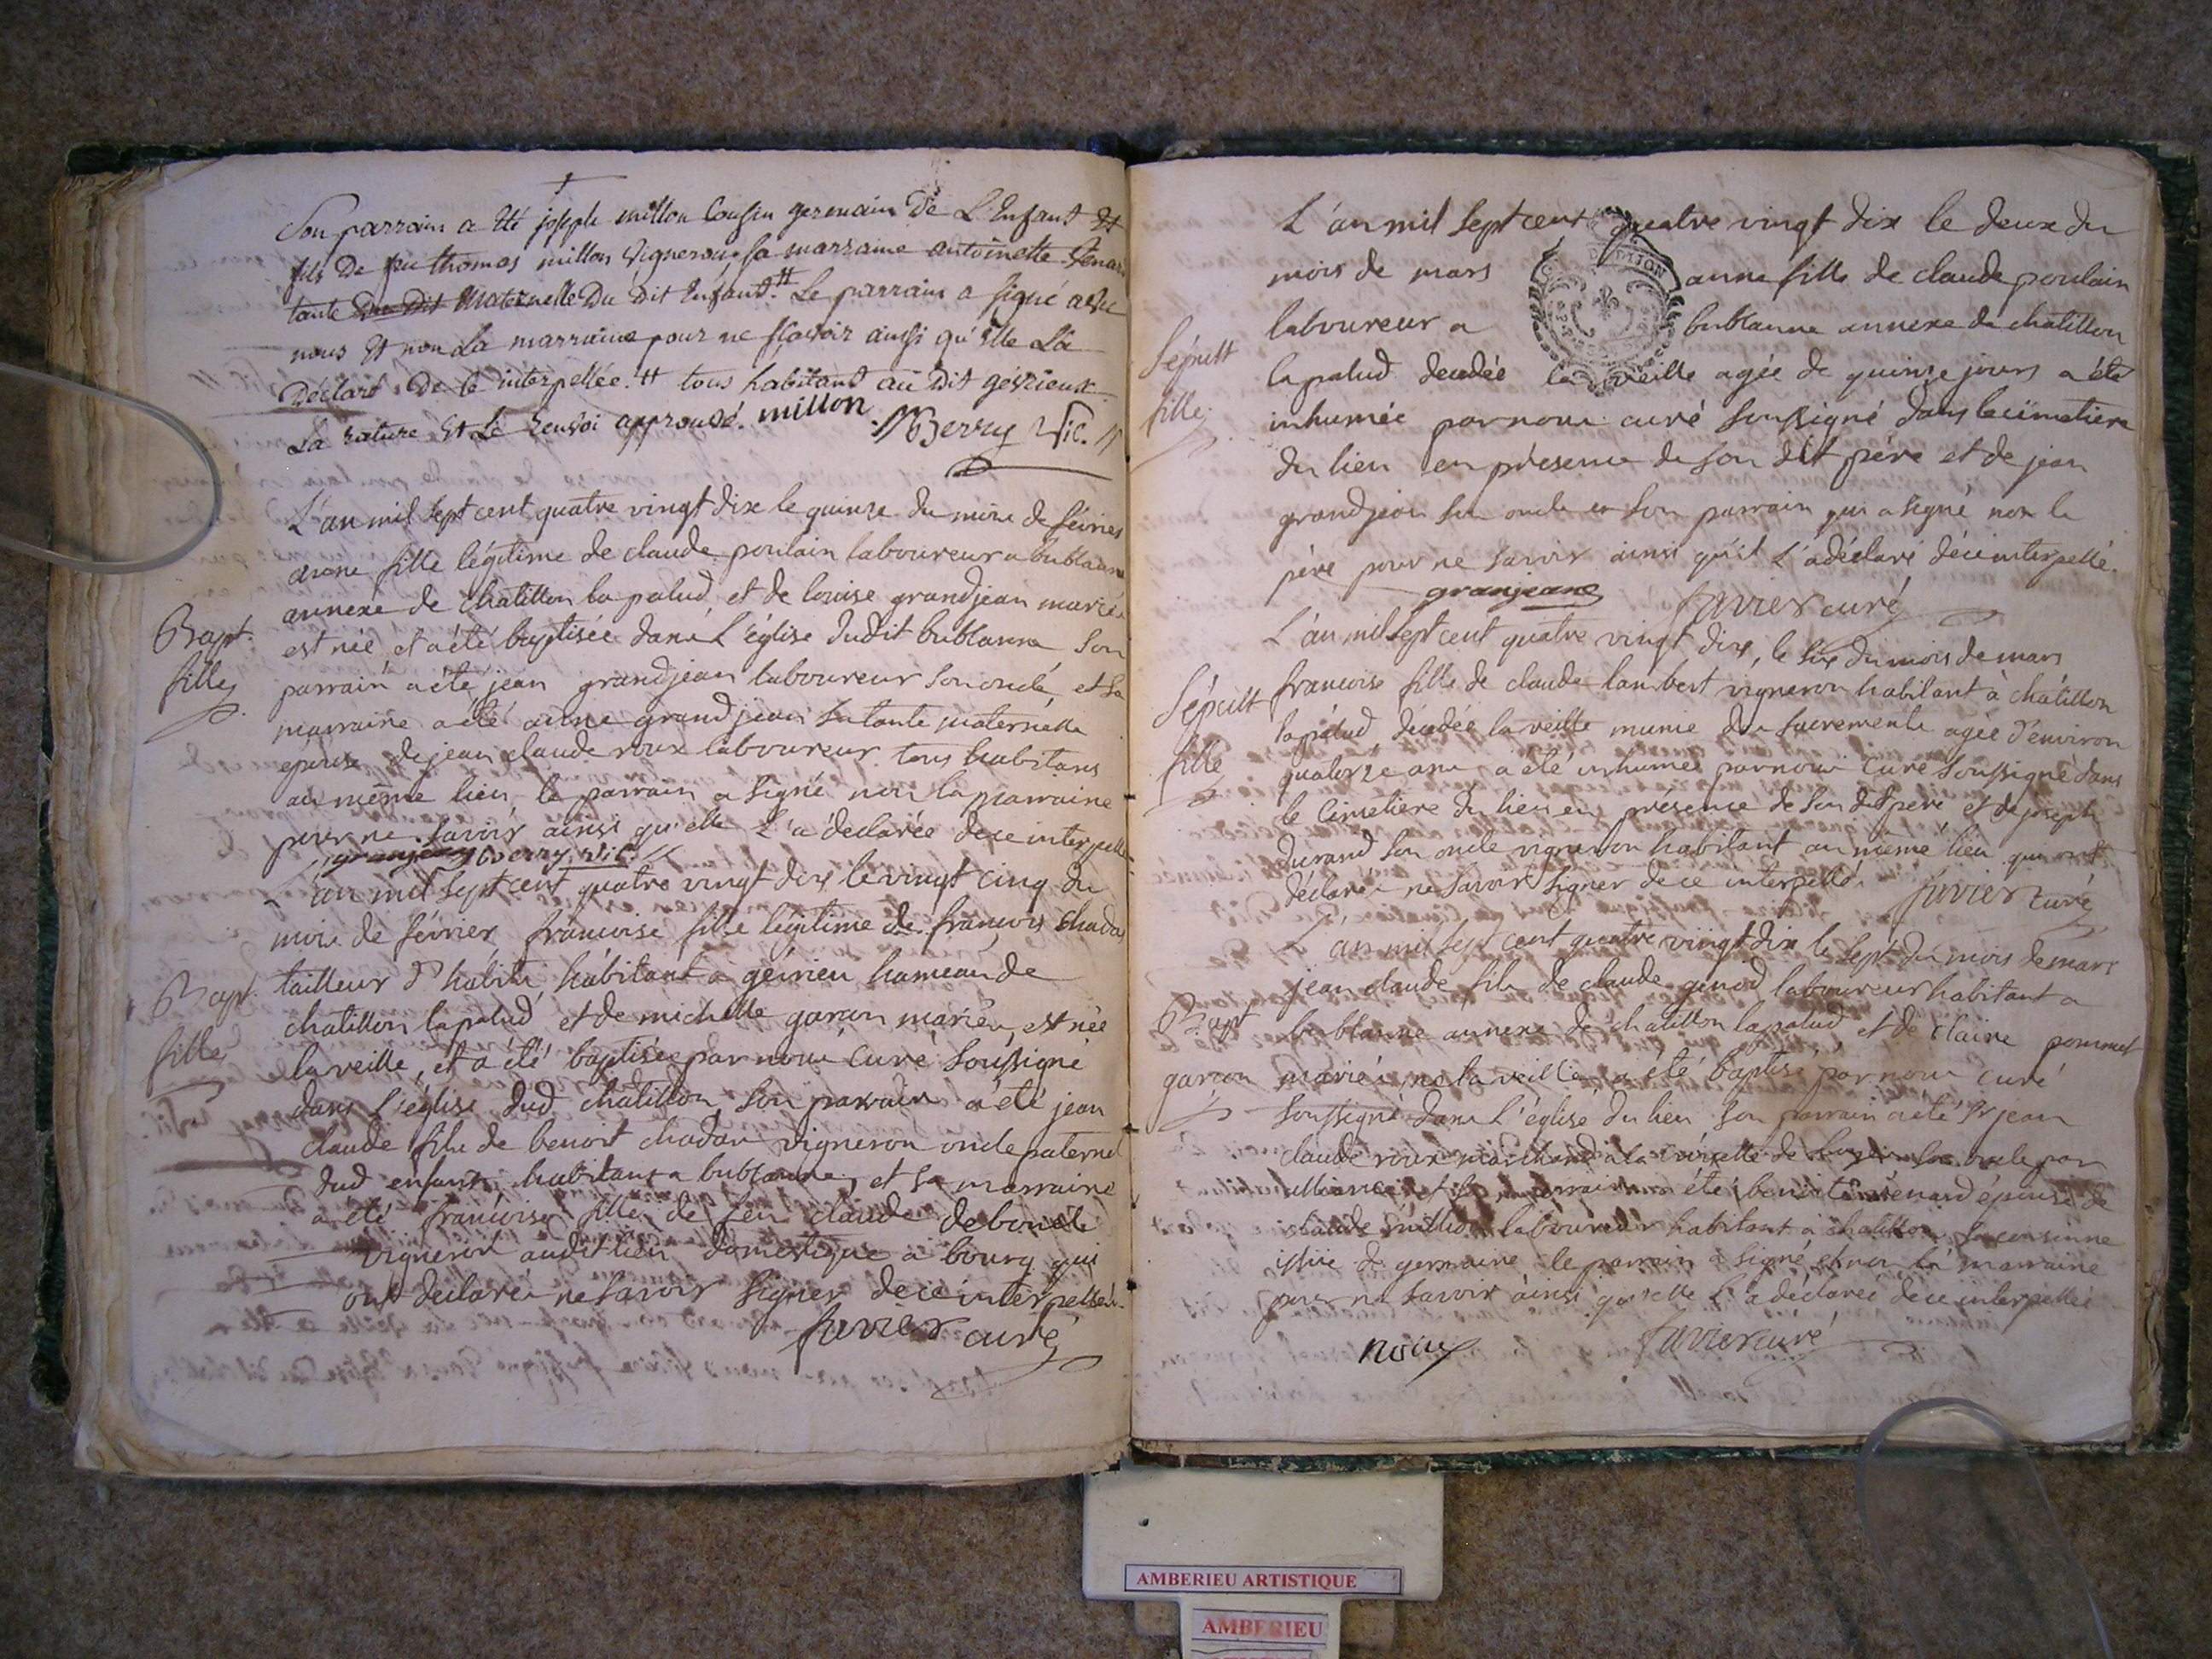 Son parrain a été joseph millon Cousin germain De L'Enfant Et
fils De feu thomas millon Vigneron Sa marraine antoinette Venard
tante Du Dit Maternelle Du Dit Enfant.# Le parrain a signé avec
nous Et non La marraine pour ne sçavoir ainsi qu'Elle La
Déclaré De Ce interpellée. # tous habitant au dit gévrieux
La rature Et Le renvoi approuvé. millon Berry Vic.
L'an mil sept cent quatre vingt dix le quinze du mois de février
anne fille légitime de claude poulain laboureur a bublanne
annexe de chatillon la palud, et de louise grandjean mariés
Bapt.
fille
est née, et a été baptisée dans L'église dudit bublanne Son
parrain a été jean grandjean laboureur son oncle, et sa
marraine a été anne grandjean sa tante maternelle
épouse de jean claude roux laboureur tous habitans
au même lieu, le parrain a signé non la marraine
pour ne savoir ainsi qu'elle L'a déclarée de ce interpellée
granjean Berry vic.
L'an mil sept cent quatre vingt dix le vingt cinq du
mois de février francoise fille légitime de françois chadas
Bapt.
fille
tailleur d'habits habitant a gévrieu hameau de
chatillon lapalud, et de michelle garcon mariés, est née
la veille, et a été baptisée par nous Curé Soussigné
dans L'église dud chatillon, son parrain a été jean
claude fils de benoit chadas vigneron oncle paternel
dud enfant habitant a bublanne, et sa marraine
a été francoise fille de feu claude
vigneron audit lieu domestique a bourg qui
ont déclarés ne savoir signer de ce interpellés.
favier curé
L'an mil sept cent quatre vingt dix le deux du
mois de mars anne fille de claude poulain
laboureur a bublanne annexe de chatillon
Sépult
fille
lapalud decedée la veille agée de quinze jours a été
inhumée par nous curé soussigné dans le cimetiere
du lieu en présence de son dit père et de jean
grandjean son oncle et son parrain qui a signé non le
père pour ne savoir ainsi qu'il L'a déclaré de ce interpellé.
granjean favier curé
L'an mil sept cent quatre vingt dix, le six du mois de mars
Sépult
fille
francoise fille de claude lambert vigneron habitant à châtillon
lapalud décedée la veille munie des sacrements agée d'environ
quatorze ans a été inhumée par nous Curé Soussigné dans
le Cimetiere du lieu en présence de son dit père, et de joseph
durand son oncle vigneron habitant au même lieu qui ont
déclarés ne savoir signer de ce interpellés favier curé
L'an mil sept cent quatre vingt dix le sept du mois de mars
jean claude fils de claude genod laboureur habitant a
Bapt
garcon
bublanne annexe de chatillon lapalud, et de claire pommet
mariés, né la veille a été baptisé par nous curé
soussigné dans L'église du lieu Son parrain a été Sr jean
claude roux marchand a la oncle par
alliance et sa marraine a été benoite venard épouse de
claude millon laboureur habitant a chatillon sa cousinne
issue de germaine le parrain a signé et non la marraine
pour ne savoir ainsi qu'elle L'a déclarée de ce interpellée
roux favier curé
AMBERIEU ARTISTIQUE
AMBERIEU